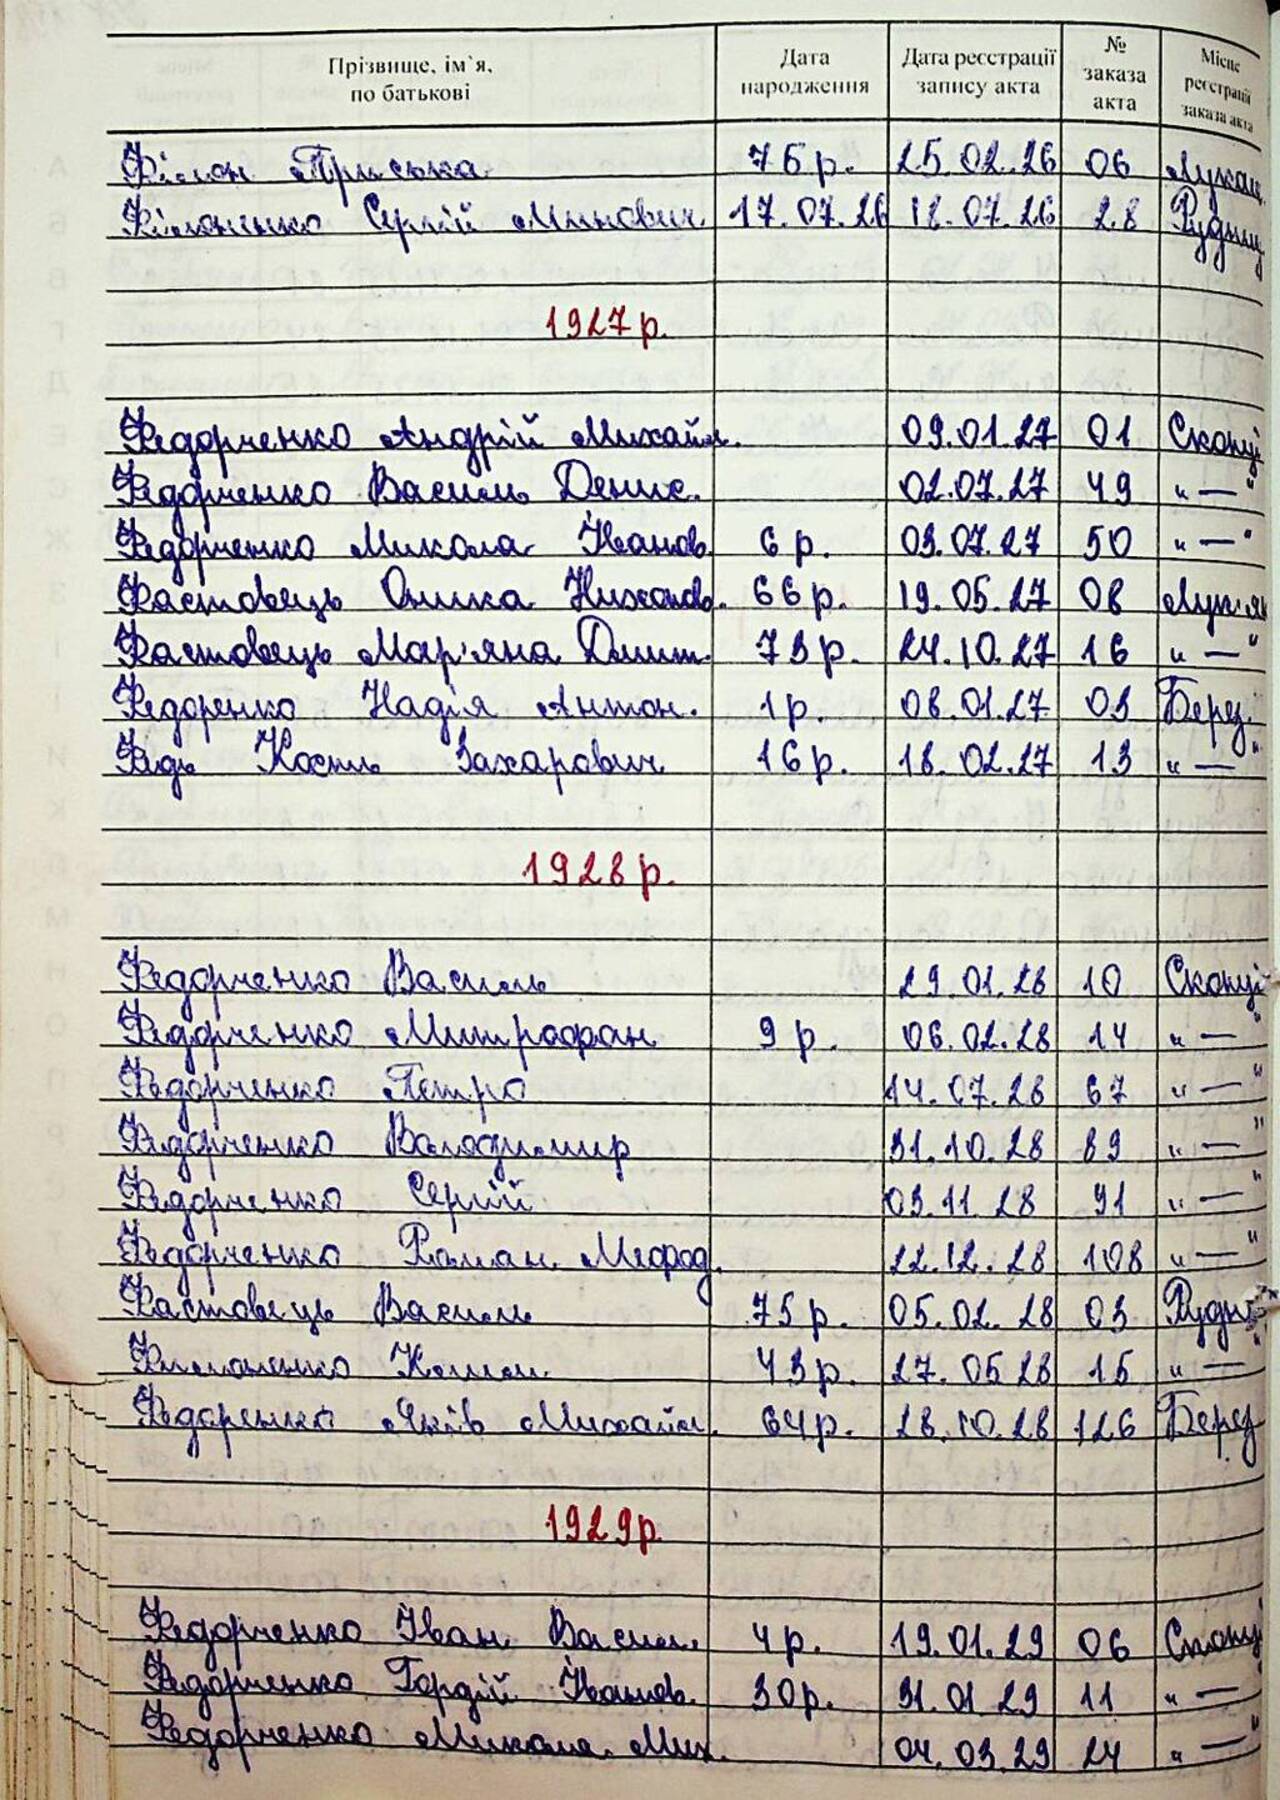 Прізвище, ім`я, по батькові | Дата народження | Дата реєстрації запису акта | № заказа акта | Місце реєстрації заказа акта
Філон Приська 75 р. 25.02.26 06
Філоненко Сергій Минович. 17.07.26 18.07.26 28 Рудниц
1927 р.
Федорченко Андрій Михайл. 09.01.27 01 Скопці
Федорченко Василь Денис. 02.07.27 49 "—"
Федорченко Микола Іванов. 6 р. 03.07.27 50 "—"
Фастовець Ониска 66 р. 19.05.27 08 Лук'ян
Фастовець Мар'яна Дмит. 73 р. 24.10.27 16 "—"
Федоренко Надія Антон. 1 р. 08.01.27 03 Берез.
Федь Костя Захарович 16 р. 18.02.27 13 "—"
1928 р.
Федорченко Василь 29.01.28 10 Скопці
Федорченко Митрофан 9 р. 06.02.28 14 "—"
Федорченко Петро 14.07.28 67 "—"
Федорченко Володимир 31.10.28 89 "—"
Федорченко Сергій 03.11.28 91 "—"
Федорченко Роман Мефод. 22.12.28 108 "—"
Фастовець Василь 75 р. 05.02.28 03 Рудн
Филоненко 43 р. 27.05 28 15 "—"
Федоренко Яків Михайл. 64 р. 28.10.28 126 Берез
1929 р.
Федорченко Іван Васил. 4 р. 19.01.29 06 Скопці
Федорченко Гордій Іванов. 30 р. 31.01 29 11 "—"
Федорченко Микола Мих. 04.03.29 24 "—"